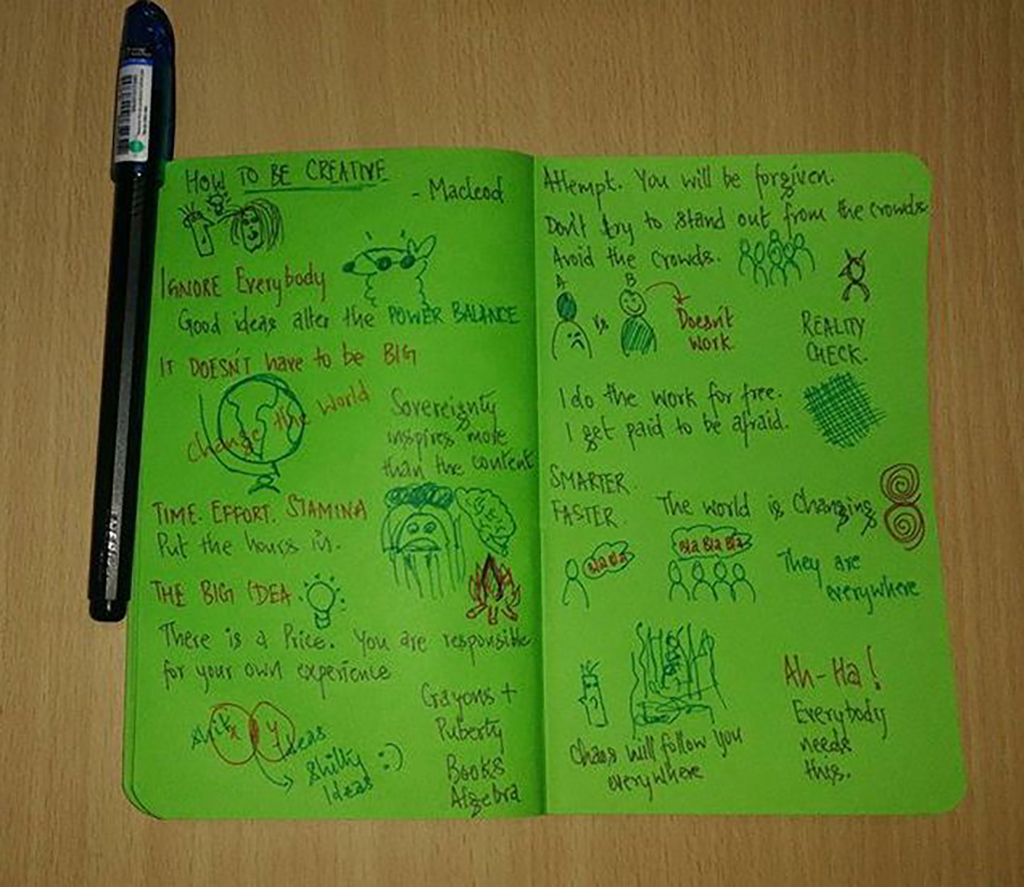 HOW TO BE CREATIVE
- Macleod
IGNORE Everybody
Good ideas alter the POWER BALANCE
IT DOESN'T have to be BIG
Change the world
Sovereignty
inspires more
than the content
TIME. EFFORT. STAMINA
Put the hours in.
THE BIG IDEA.
There is a Price. You are responsible
for your own experience
X Y
Ideas
Shilky
Ideas
:-)
Crayons +
Puberty
Books
Algebra
Attempt. You will be forgiven.
Don't try to stand out from the crowds
Avoid the crowds.
A
B
Vs
Doesn't
work
REALITY
CHECK.
I do the work for free.
I get paid to be afraid.
SMARTER.
FASTER.
The world is changing
Bla Bla
Bla Bla Bla
They are
everywhere
Chaos will follow you
everywhere
Ah-Ha!
Everybody
needs
this.